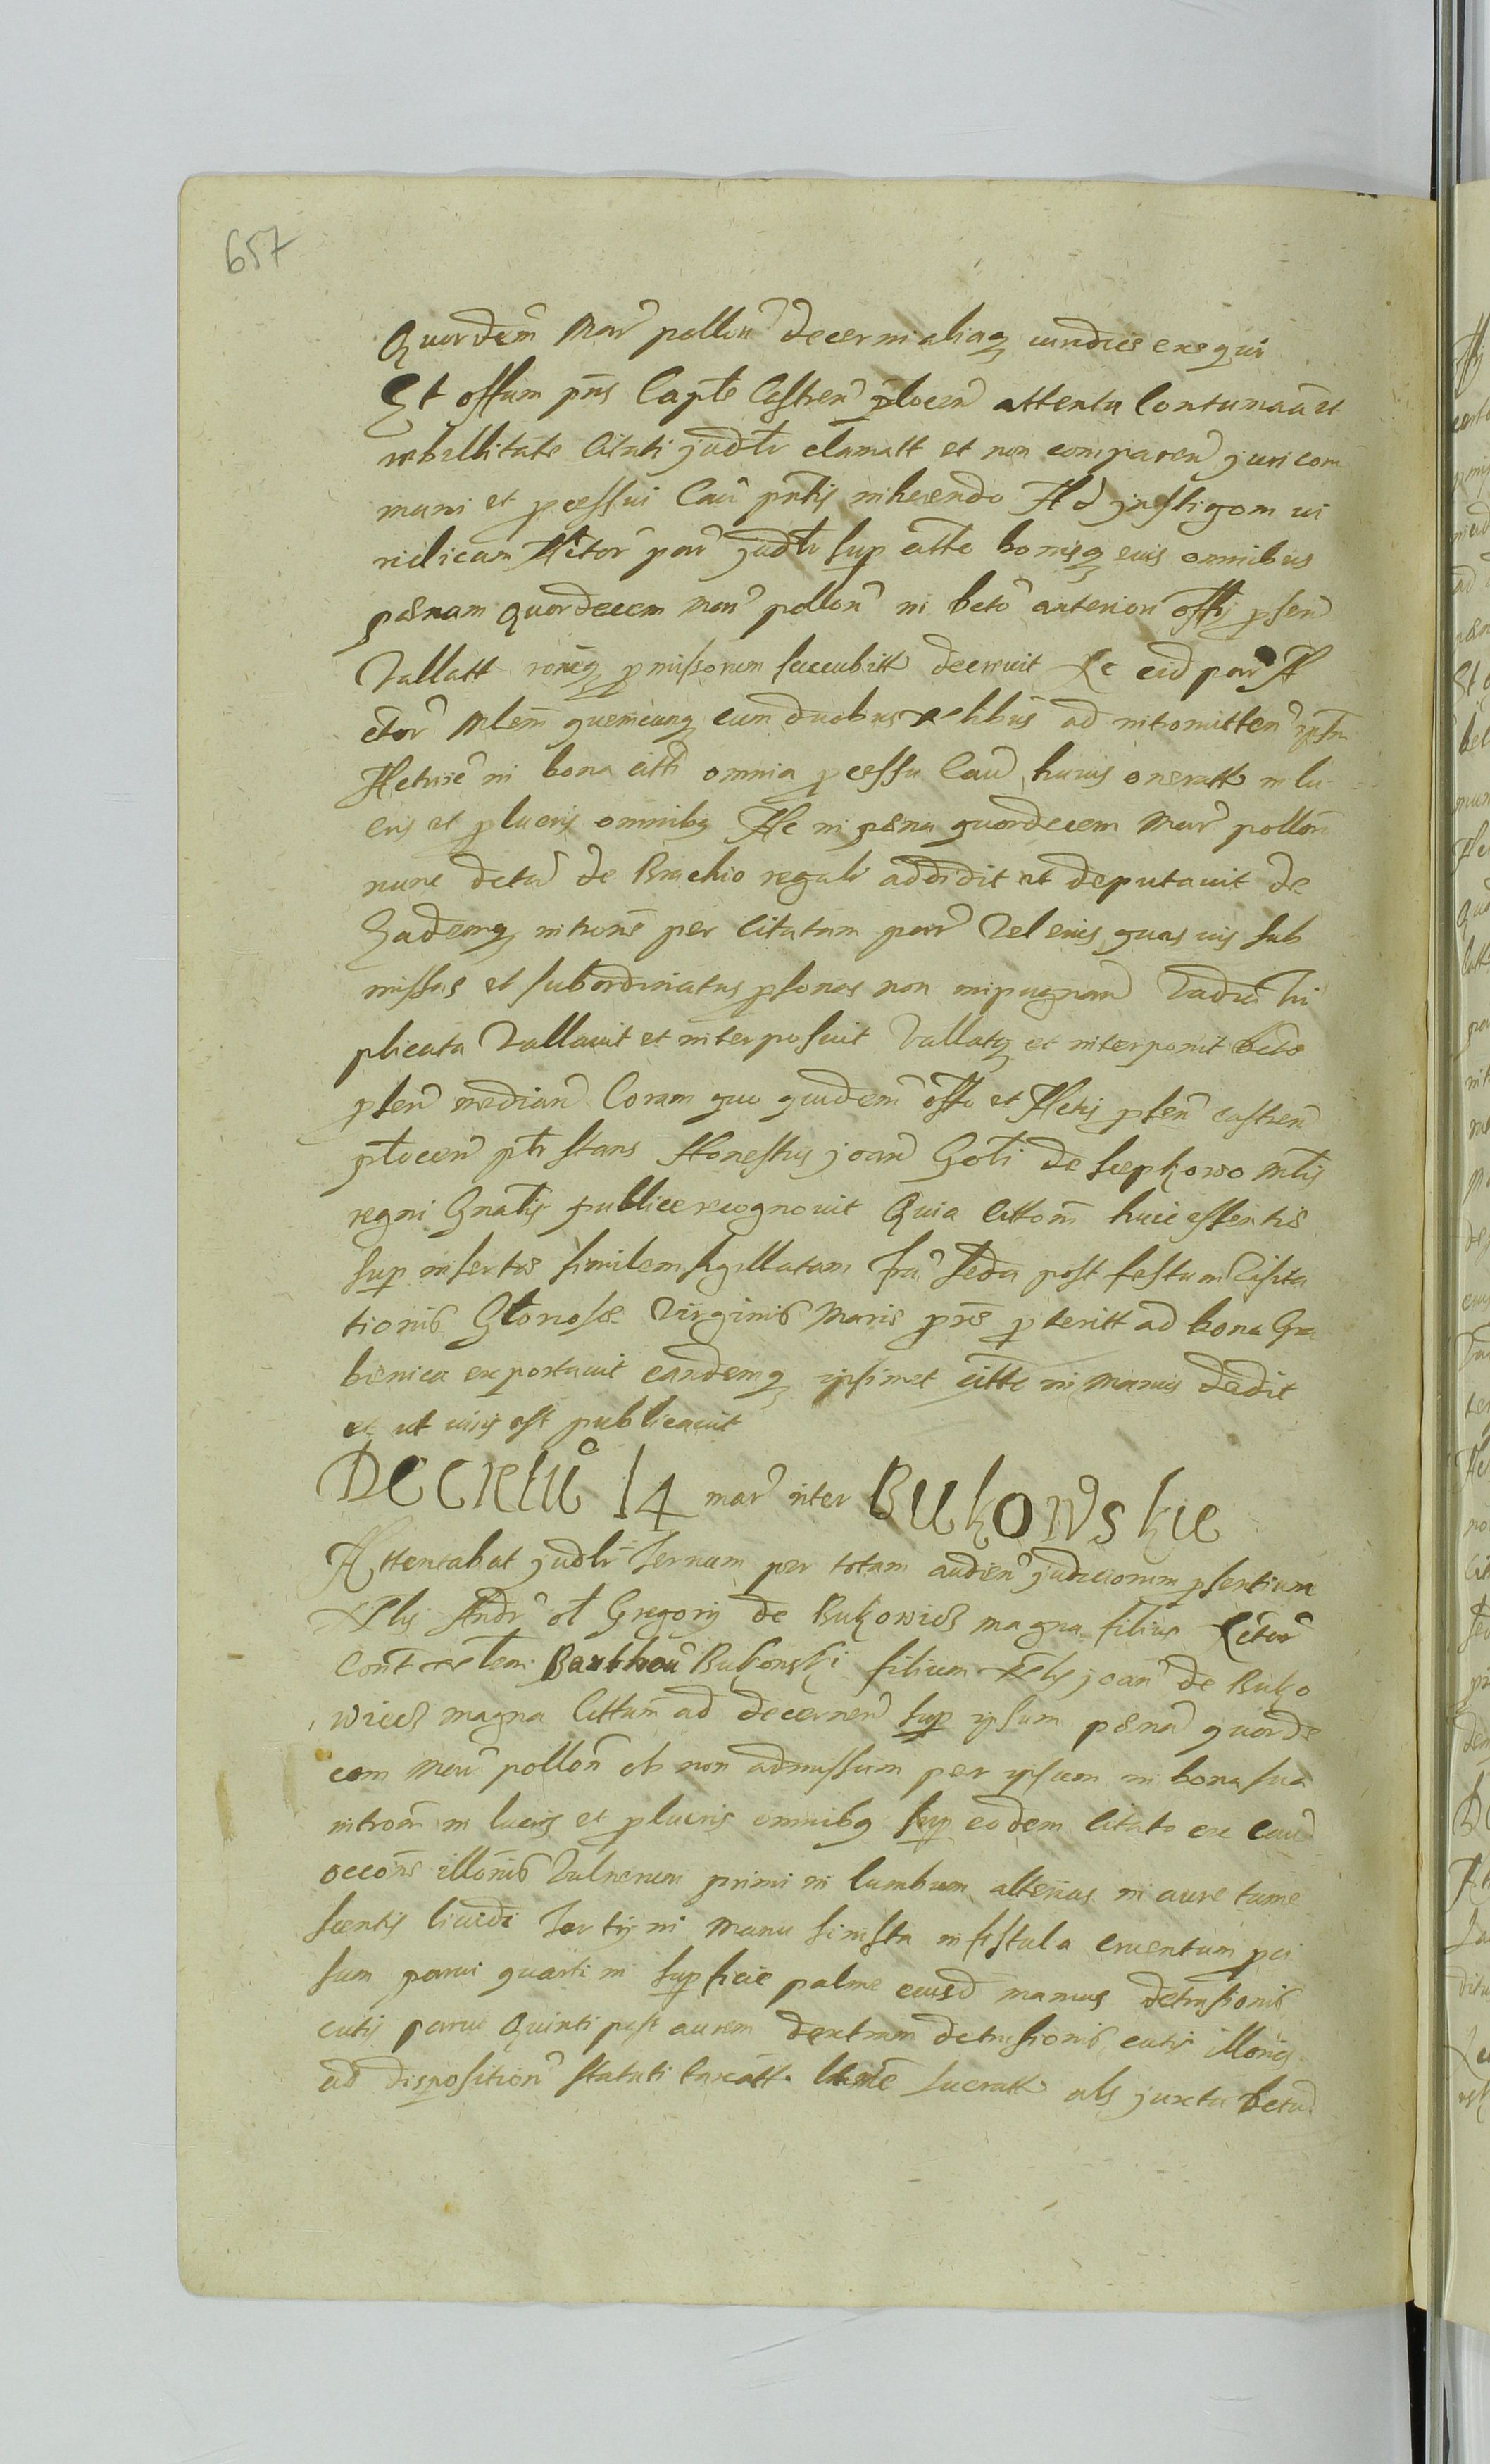 657
Quordem Mar pollon decerni aliaq iuridice exequi
Et offum pns Capte Castren plocen attenta Contumacia et
rebellitate Citati judtr clamatt et non comparen juri com
muni et pcessui Cau pntis inherendo Ad instigom iu
ridicam Actor par judtr sup citto bonisq euis omnibus
pænam quordecem mar pollon in decto anteriori offi psen
Vallatt roneq pmissorum succubitt decreuit Ac eid par A
ctor Mlem quemcunq cum duobus nelibus ad intromitten ipsm
Actore in bona citti omnia pcessu Cau huius oneratt in lu
cris et plucris omnibq Ac in pæna quordecem Mar pollon
nunc decta de Brachio regali addidit et deputauit de
Eademq introne per Citatum par Vel euis quas uis sub
missas et subordinatas psonas non impugnand Vadia tri
plicata Vallauit et interposuit Vallatq et interponit decto
psen median Coram quo quidem offo et Actis psen castren
plocen pltr stans Honestus joan Goti de Sœpkowo mtis
regni Gnatis publice recognouit Quia Cittom huic essentie
sup insertæ similem sigillatam fra 2eda post festum Visita
tionis Gloriosæ Virginis Mariæ pns pteritt ad bona Gra
bienica exportauit eandemq ipsimet citto in manus dedit
et ut iuris est publicauit
Decretu 14 mar inter Bukowskie
Attentabat judtr Ternum per totam audien judiciorum psentium
Nlis Andr ol Gregorij de Bukowiecz magna filius Actor
Cont nlem Barthom Bukowski filium Nlis joan de Buko
wiecz magna Cittum ad decernen sup ipsum pænam quorde
cem Mar pollon ob non admissum per ipsum in bona sua
introm in lucris et plucris omnibq sup eodem Citato ex cau
occone illonis Vulnerum primi in lumbum alterius in aure tume
scentis liuidi Tertij in manu sinistra in fistula cruentum pci
sum parui quarti in supficie palme eiusd manus detrusionis
cutis parue Quinti post aurem dextram detrusionis cutis illoniq
ad disposition statuti taxatt lucratt als juxta